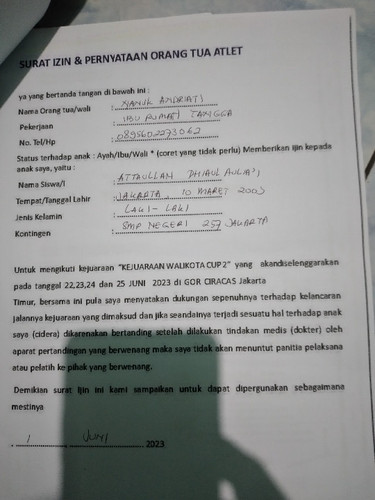 SURAT IZIN & PERNYATAAN ORANG TUA ATLET
ya yang bertanda tangan di bawah ini :
Nama Orang tua/wali : NANIK ANDRIATI
Pekerjaan : IBU RUMAH TANGGA
No. Tel/Hp : 0895602273062
Status terhadap anak : Ayah/Ibu/Wali * (coret yang tidak perlu) Memberikan ijin kepada
anak saya, yaitu :
Nama Siswa/i : ATTAULLAH DHIAUL AULIA'I
Tempat/Tanggal Lahir : JAKARTA, 10 MARET
Jenis Kelamin : LAKI - LAKI
Kontingen : SMP NEGERI 257 JAKARTA
Untuk mengikuti kejuaraan "KEJUARAAN WALIKOTA CUP 2" yang akandiselenggarakan
pada tanggal 22,23,24 dan 25 JUNI 2023 di GOR CIRACAS Jakarta
Timur, bersama ini pula saya menyatakan dukungan sepenuhnya terhadap kelancaran
jalannya kejuaraan yang dimaksud dan jika seandainya terjadi sesuatu hal terhadap anak
saya (cidera) dikarenakan bertanding setelah dilakukan tindakan medis (dokter) oleh
aparat pertandingan yang berwenang maka saya tidak akan menuntut panitia pelaksana
atau pelatih ke pihak yang berwenang.
Demikian surat Ijin ini kami sampaikan untuk dapat dipergunakan sebagaimana
mestinya
1 JUNI 2023